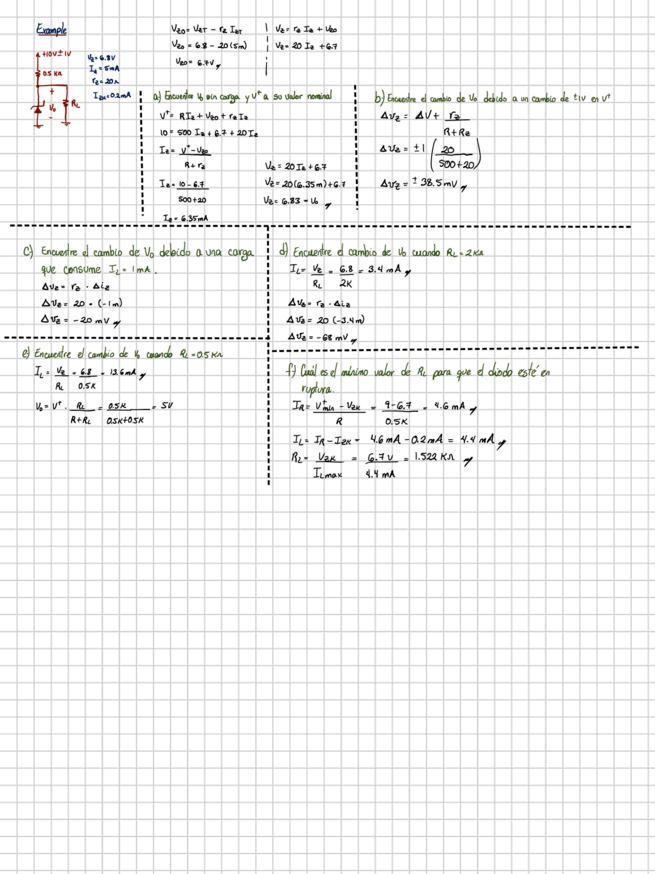 Example
+10V±1V
0.5 KΩ
+
Vo
-
RL
Vz = 6.8V
Iz = 5mA
rz = 20Ω
Izk = 0.2mA
Vzo = VzT - rz IzT
Vzo = 6.8 - 20(5m)
Vzo = 6.7V
Vz = rz Iz + Vzo
Vz = 20 Iz + 6.7
a) Encuentre Vo sin carga y V⁺ a su valor nominal
V⁺ = RIz + Vzo + rz Iz
10 = 500 Iz + 6.7 + 20 Iz
Iz = V⁺ - Vzo
R + rz
Iz = 10 - 6.7
500 + 20
Iz = 6.35mA
Vz = 20 Iz + 6.7
Vz = 20(6.35m) + 6.7
Vz = 6.83 = Vo
b) Encuentre el cambio de Vo debido a un cambio de ±1V en V⁺
ΔVz = ΔV+ rz
R + Rz
ΔVz = ±1 (20
500+20)
ΔVz = ± 38.5mV
c) Encuentre el cambio de Vo debido a una carga
que consume IL = 1mA.
ΔVz = rz · Δiz
ΔVz = 20 · (-1m)
ΔVz = -20 mV
d) Encuentre el cambio de Vo cuando RL = 2KΩ
IL = Vz = 6.8 = 3.4 mA
RL 2K
ΔVz = rz · Δiz
ΔVz = 20 (-3.4m)
ΔVz = -68 mV
e) Encuentre el cambio de Vo cuando RL = 0.5KΩ
IL = Vz = 6.8 = 13.6mA
RL 0.5K
Vo = V⁺ · RL = 0.5K = 5V
R+RL 0.5K+0.5K
f) Cuál es el mínimo valor de RL para que el diodo esté en
ruptura.
IR = V⁺min - Vzk = 9-6.7 = 4.6 mA
R 0.5K
IL = IR - Izk = 4.6 mA - 0.2 mA = 4.4 mA
RL = Vzk = 6.7V = 1.522 KΩ
ILmax 4.4 mA